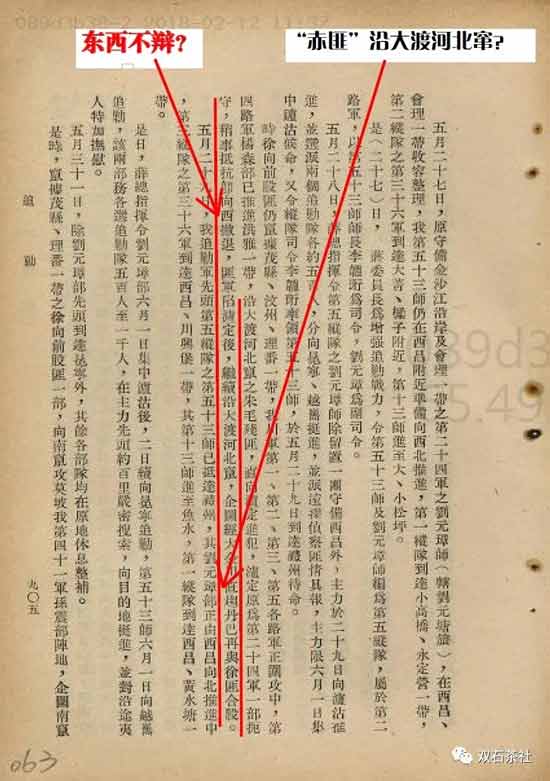 089d3b38-2 2018-02-12 11:37
东西不辩?
“赤匪”沿大渡河北窜?
五月二十七日，原守備金沙江沿岸及會理一帶之第二十四軍之劉元璋師（轄劉元瑭旅），在西昌、
會理一帶收容整理，我第五十三師仍在西昌附近準備向西北推進，第一縱隊到達小高橋、永定營一帶，
第二縱隊之第三十六軍到達大菁、樃子附近，第十三師進至大、小松坪。
是（二十七）日，蔣委員長為增强追勦戰力，令第五十三師及劉元璋師編為第五縱隊，屬於第二
路軍，以第五十三師師長李韞珩為司令，劉元璋為副司令。
五月二十八日，薛總指揮令第五縱隊之劉元璋師除留置一團守備西昌外，主力於二十九日向瀘沽延
進，並選派兩個追勦隊各約五百人，分向冕寧、越嶲挺進，並派遠探偵察匪情具報，主力限六月一日集
中瀘沽候命，又令縱隊司令李韞珩率領第五十三師，於五月二十九日到達禮州待命。
時徐向前股匪仍竄據茂縣、汶州、理番一帶，我川軍第一、第二、第三、第五各路軍正圍攻中，第
四路軍楊森部已推進洪雅一帶，沿大渡河北竄之朱毛殘匪，直向瀘定進犯，瀘定原為第二十四軍一部扼
守，稍事抵抗即向西撤退，匪軍陷瀘定後，繼續沿大渡河北竄，企圖經大 趨丹巴再與徐匪合股。
五月二十九日，我追勦軍先頭第五縱隊之第五十三師已抵達禮州，其劉元璋部正由西昌向北推進中
，第二縱隊之第三十六軍到達西昌、川興堡一帶，其第十三師進至魚水，第一縱隊到達西昌、黃水塘一
帶。
是日，薛總指揮令劉元璋部六月一日集中瀘沽後，二日續向冕寧追勦，第五十三師六月一日向越嶲
追勦，該兩部務各選追勦隊五百人至一千人，在主力先頭約百里嚴密搜索，向目的地挺進，並對沿途夷
人特加撫慰。
五月三十一日，除劉元璋部先頭到達冕寧外，其餘各部隊均在原地休息整補。
是時，竄據茂縣、理番一帶之徐向前股匪一部，向南竄攻莫坡我第四十一軍孫震部陣地，企圖南竄
追勦
九〇五
89d3
5.49
063
双石茶社